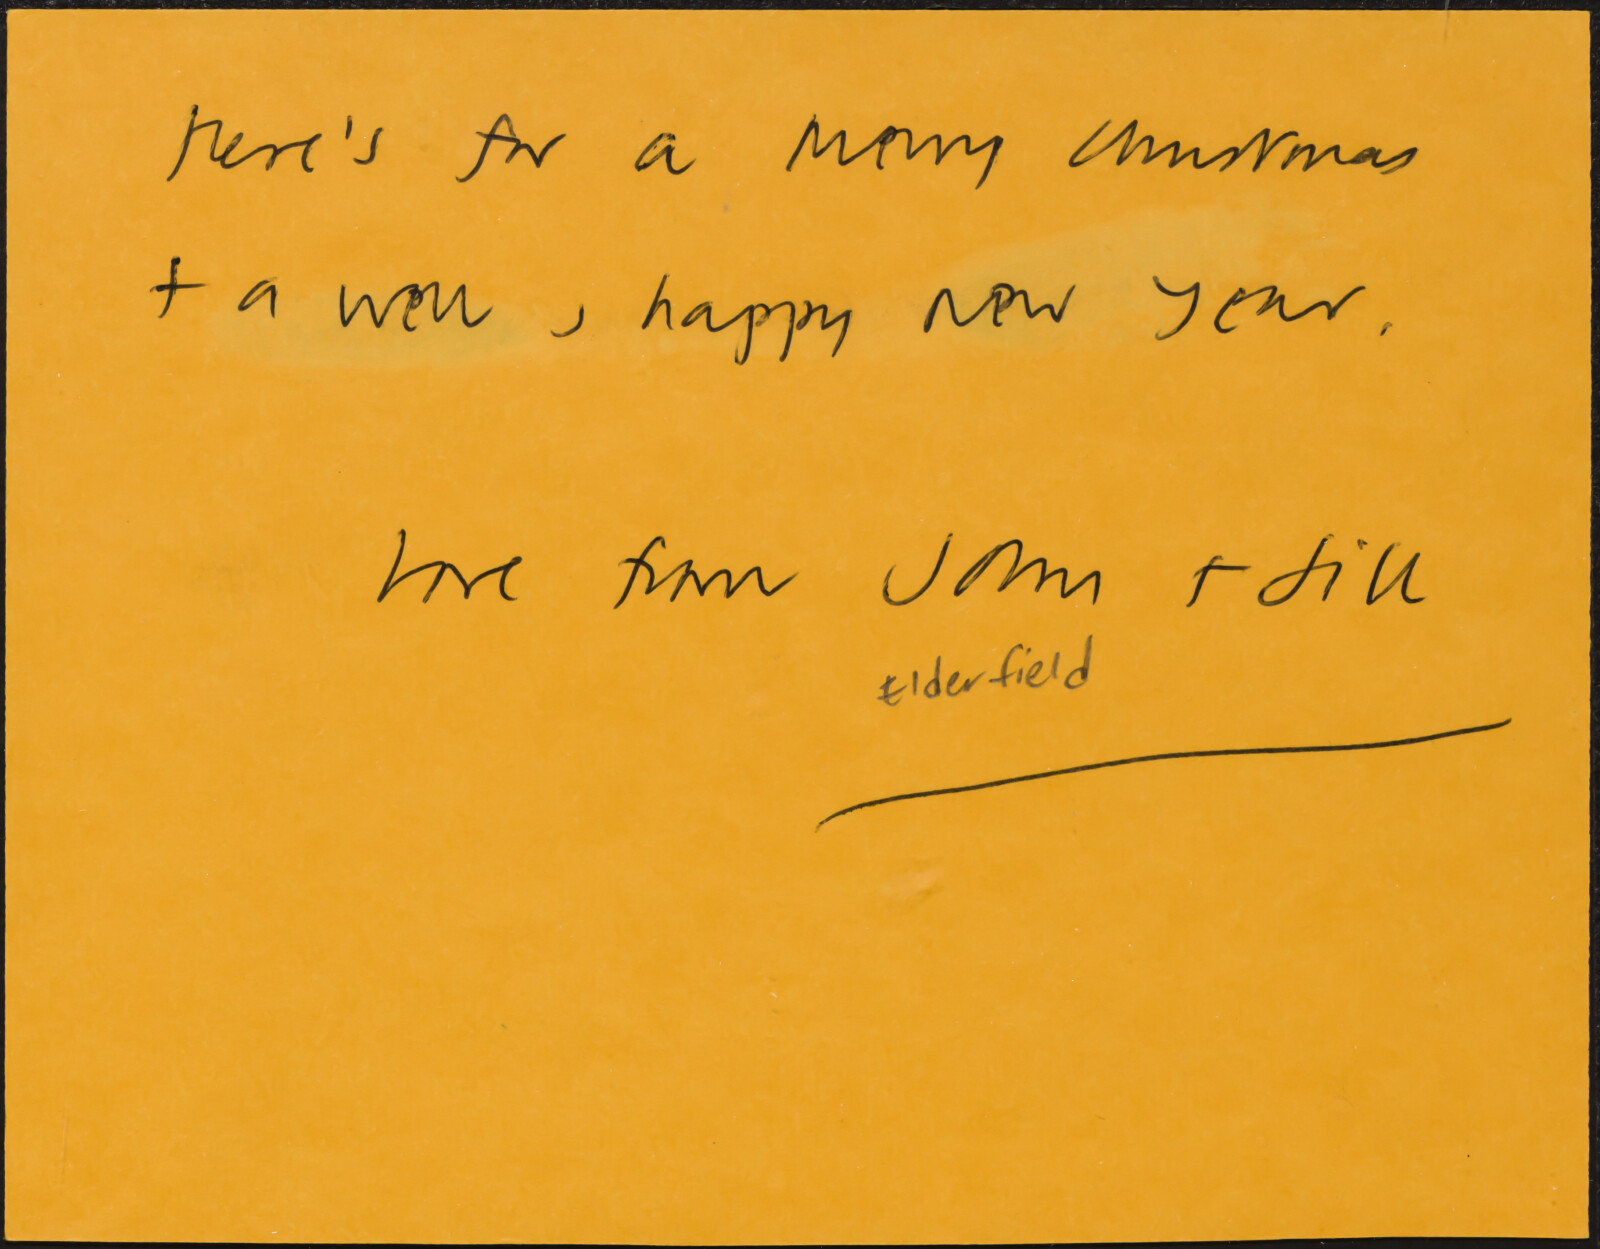 Here's for a Merry Christmas
+ a well, happy New Year.
Love from John + Jill
Elderfield